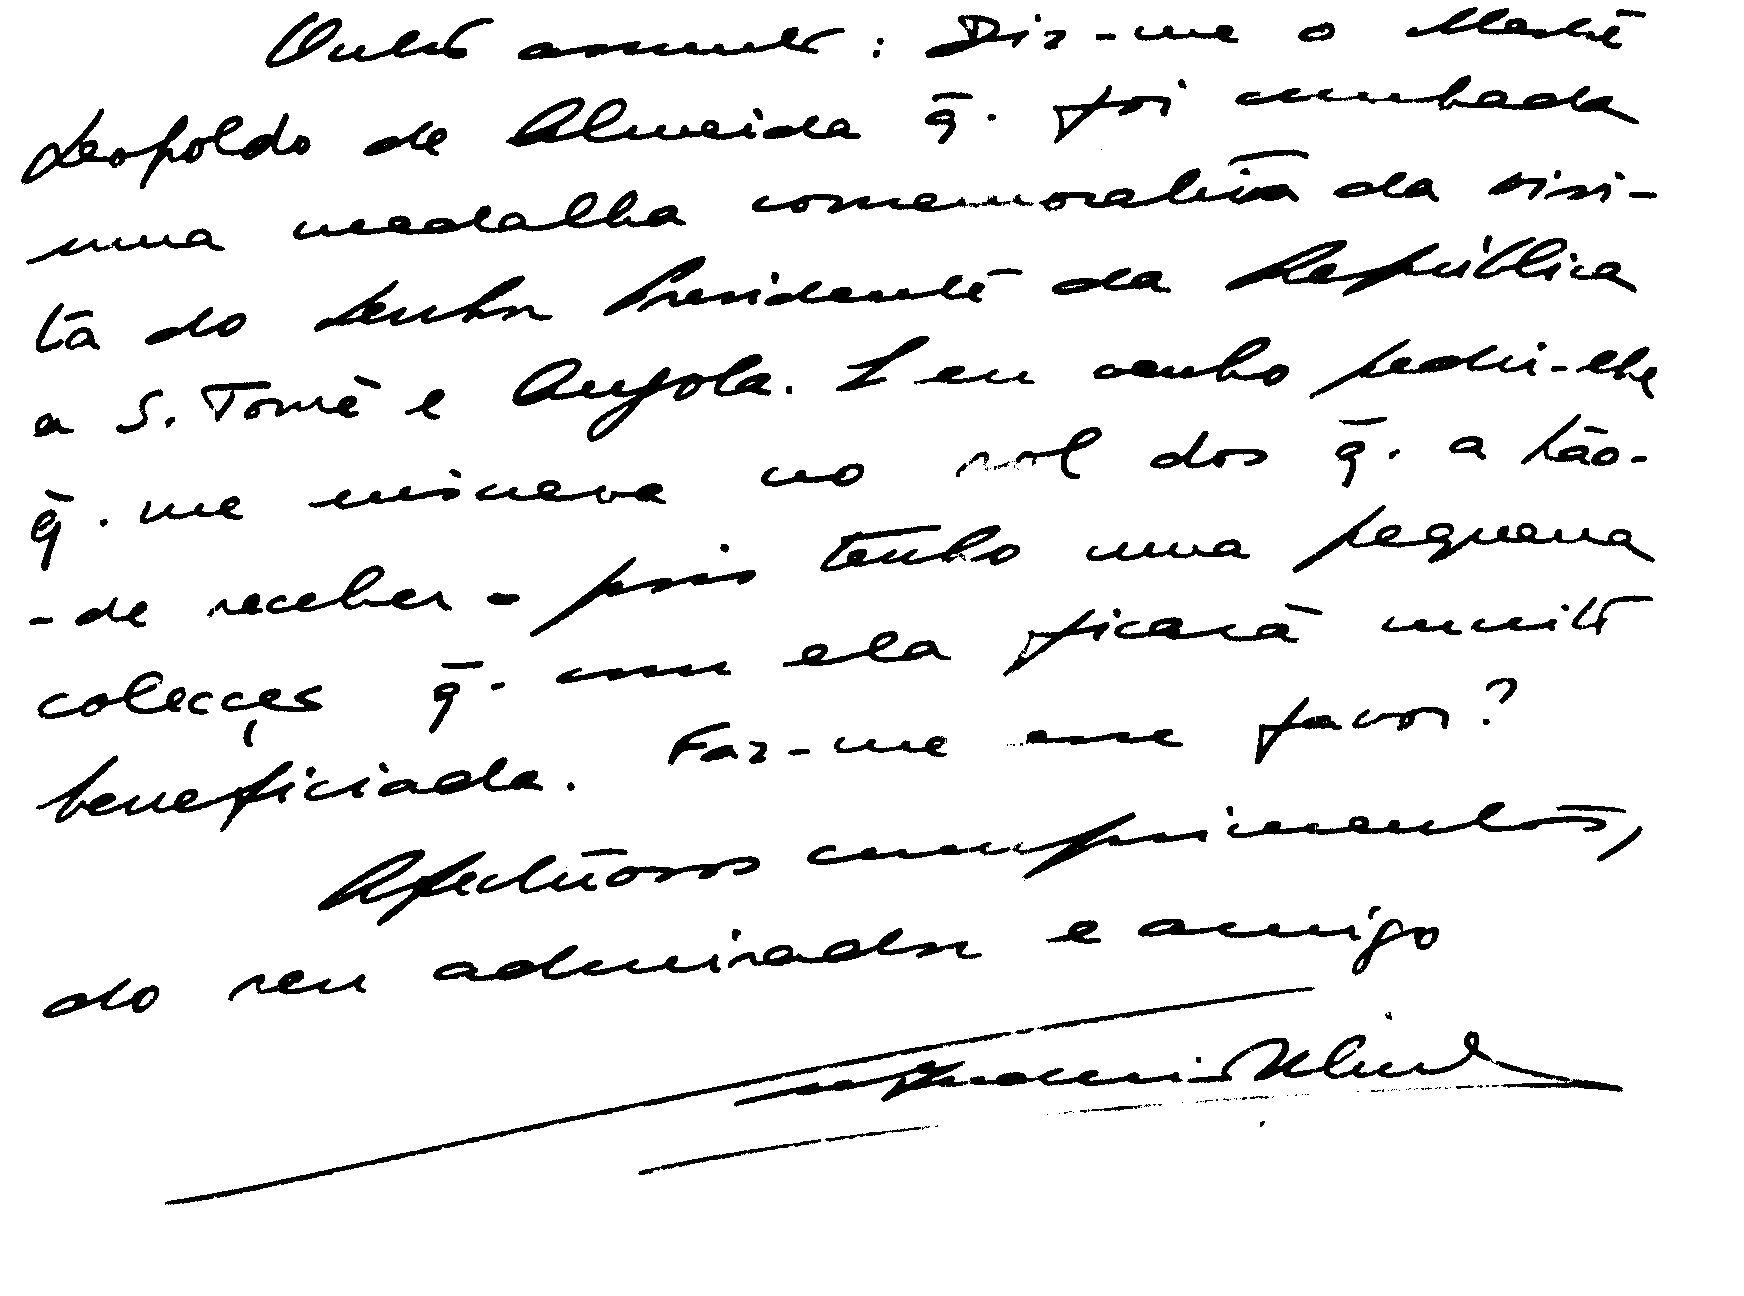 Outro assunto: Diz-me o Mestre
Leopoldo de Almeida q̄. foi cunhada
uma medalha comemorativa da visi-
ta do Senhor Presidente da República
a S. Tomé e Angola. E eu venho pedir-lhe
q̄. me inscreva no rol dos q̄. a hão-
-de receber - pois tenho uma pequena
colecçes q̄. com ela ficará muito
beneficiada. Faz-me esse favor?
Afectuosos cumprimentos,
do seu admirador e amigo